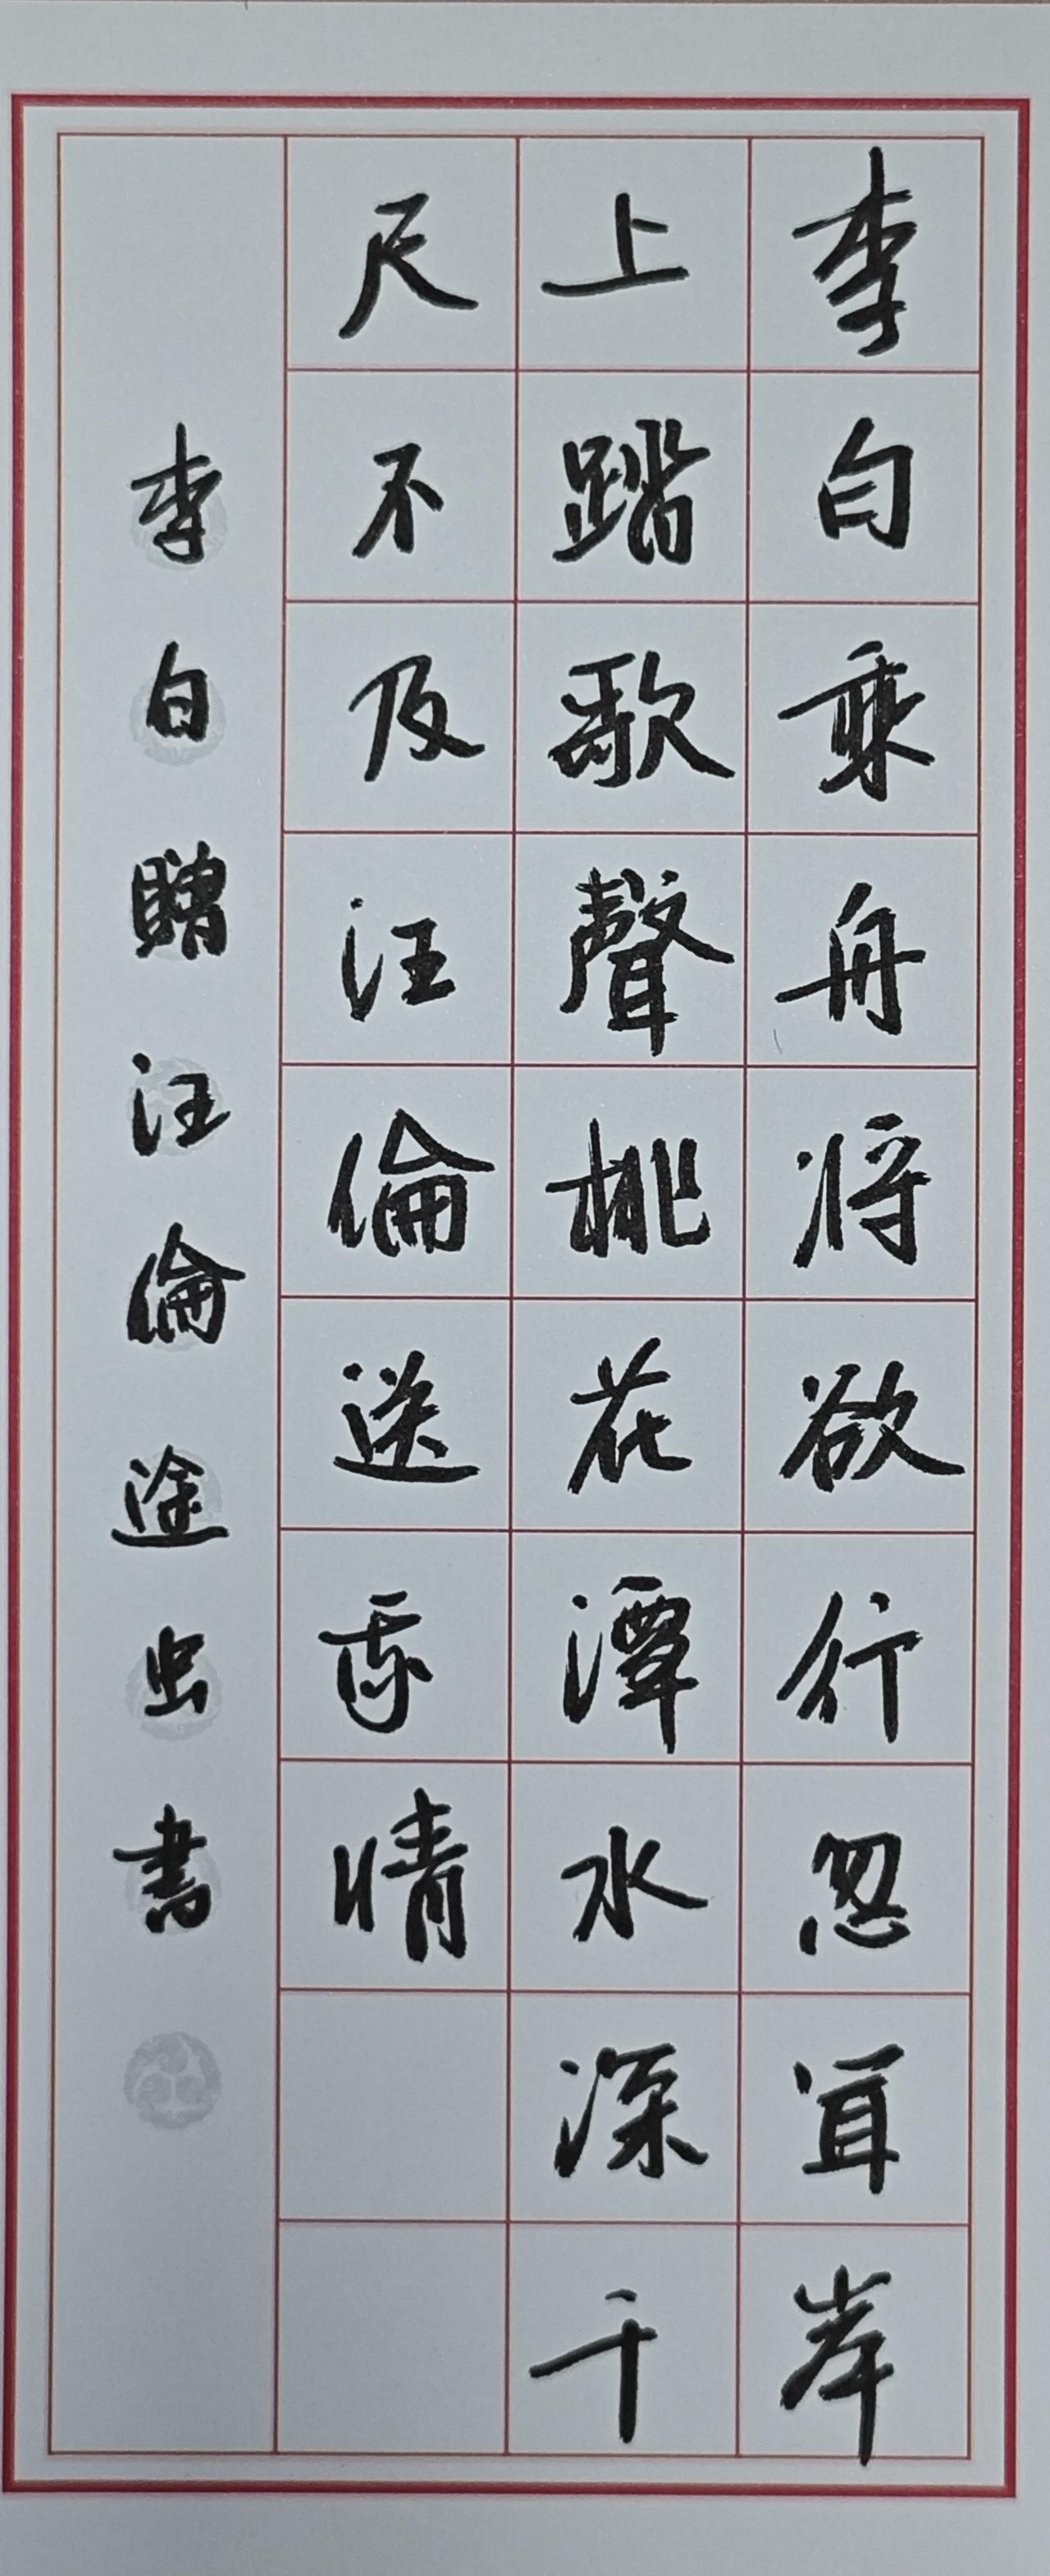 李白乘舟将欲行忽聞岸
上踏歌聲桃花潭水深千
尺不及汪倫送我情
李白贈汪倫途虫書